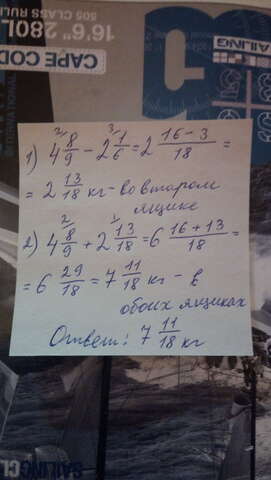 16'6" 280L
505 CLASS RULE
CAPE COD
AILING
1) 4 8/9 − 2 1/6 = 2 (16 − 3)/18 =
= 2 13/18 кг - во втором
ящике
2) 4 8/9 + 2 13/18 = 6 (16 + 13)/18 =
= 6 29/18 = 7 11/18 кг - в
обоих ящиках
Ответ: 7 11/18 кг
SAILINGCL